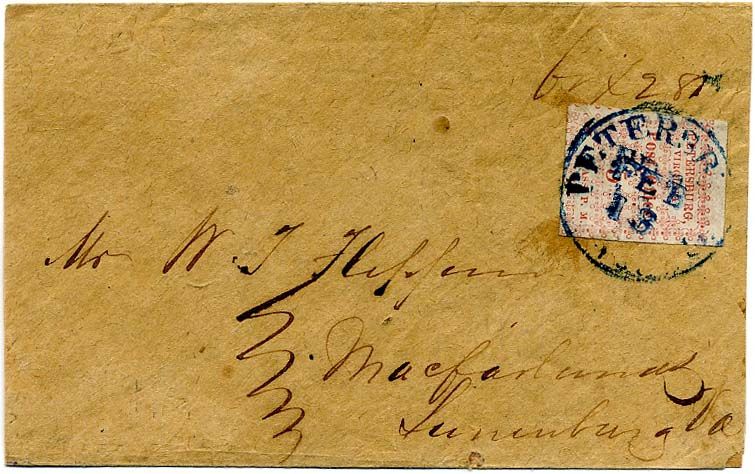 box 281
PETERSB
FEB
15
PETERSBURG,
VIRGINIA
POST OFFICE
5
P. M.
Mr W. J.
Macfarlands
Lunenburg Va